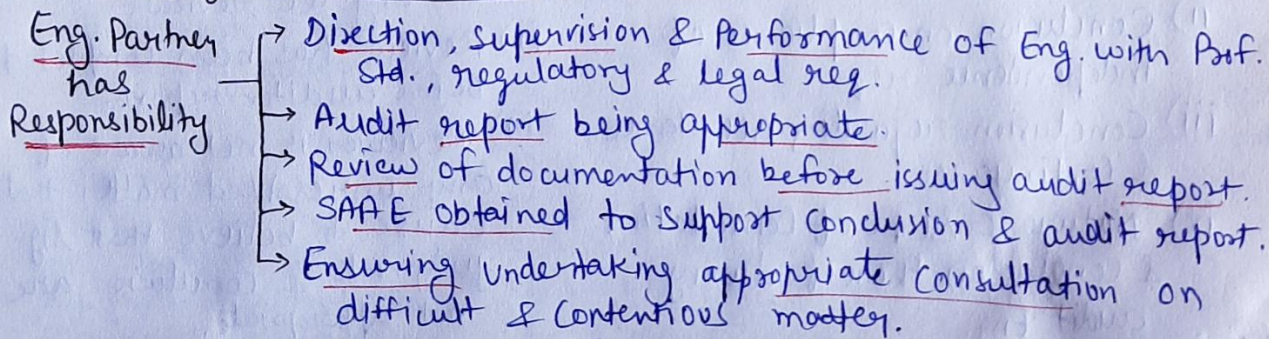 Eng. Partner has Responsibility
→ Direction, Supervision & Performance of Eng. with Prof.
Std., regulatory & legal req.
→ Audit report being appropriate.
→ Review of documentation before issuing audit report.
→ SAAE obtained to support Conclusion & audit report.
→ Ensuring undertaking appropriate Consultation on
difficult & Contentious matter.